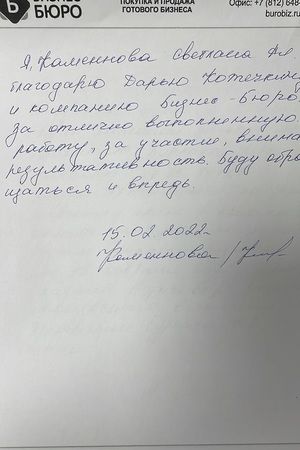 БЮРО
ПОКУПКА И ПРОДАЖА
ГОТОВОГО БИЗНЕСА
Офис: +7 (812) 648-
burobiz.ru
Я, Каменнова Светлана Ал
благодарю Дарью Котечкину
и компанию Бизнес-Бюро
за отлично выполненную
работу, за участие, внима
результативность. Буду обра
щаться и впредь.
15.02.2022г.
Каменнова /